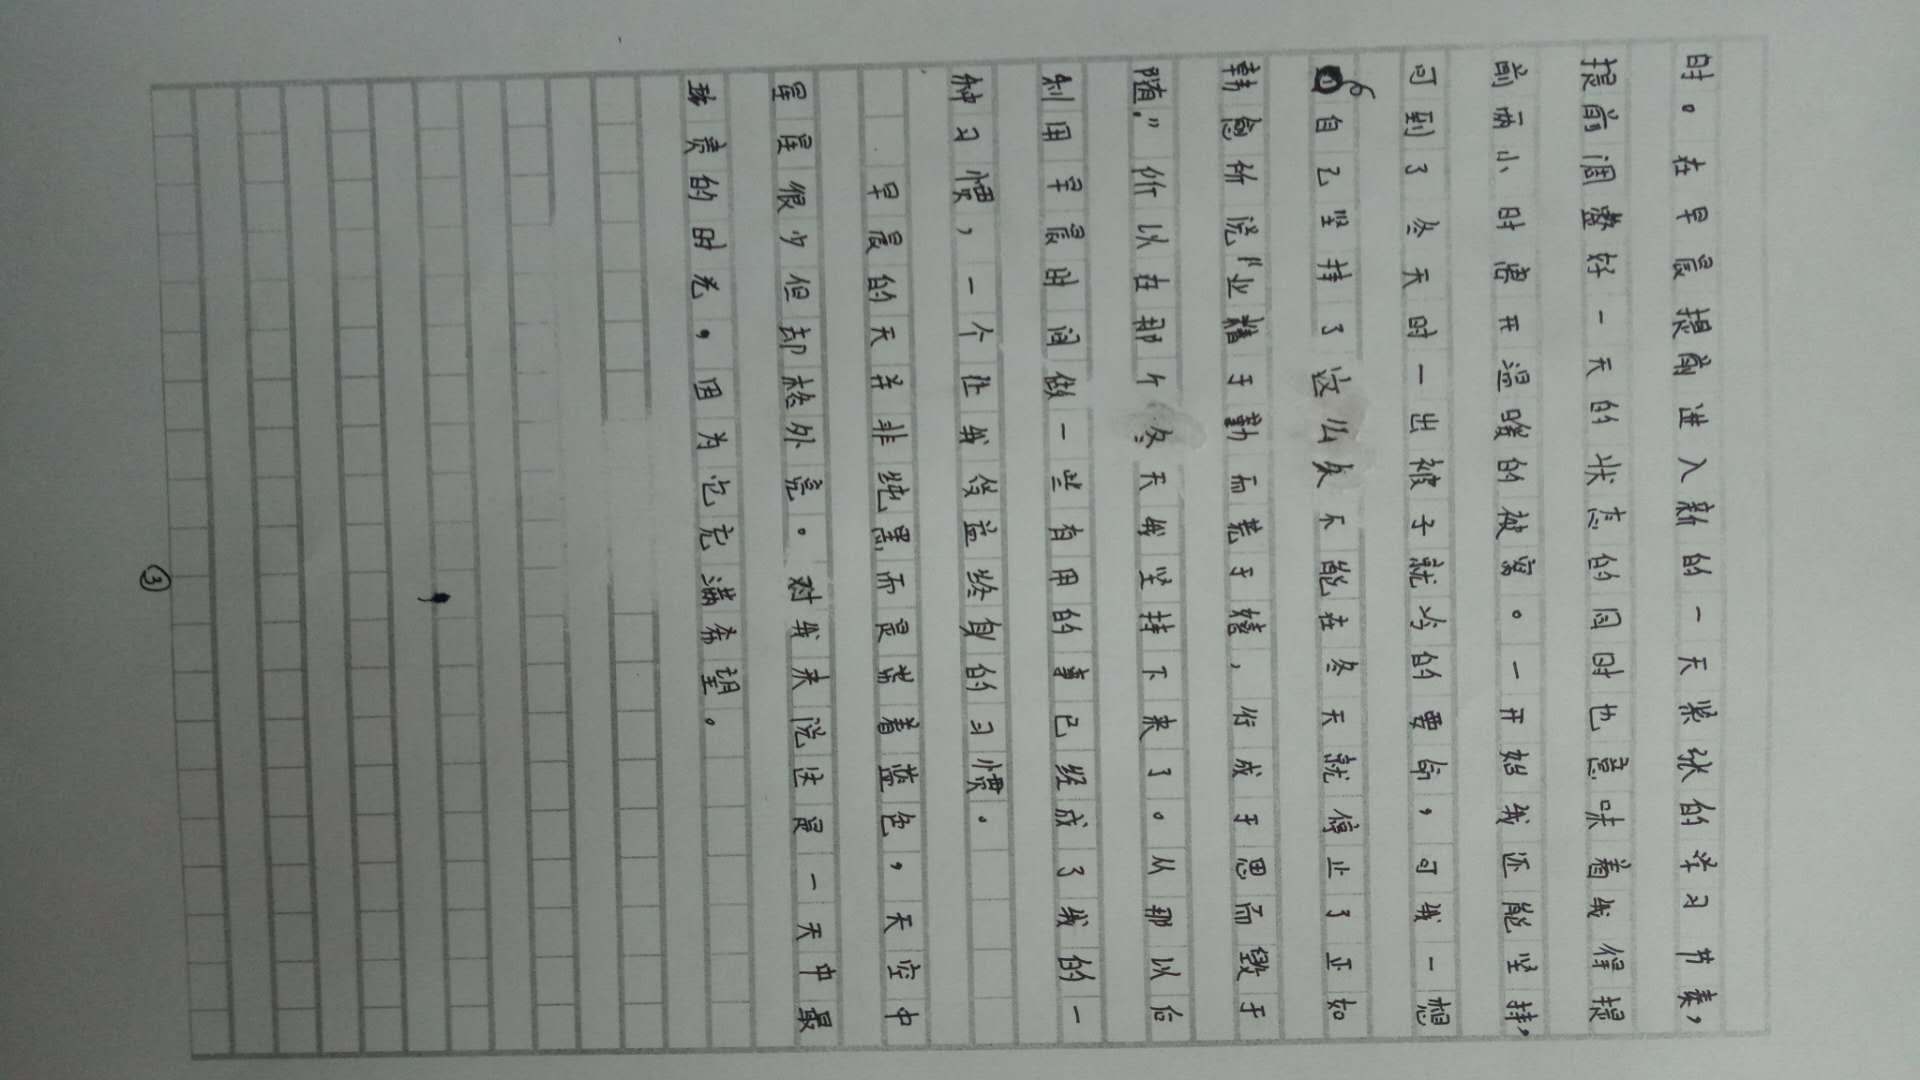 时。在早晨提前进入新的一天紧张的学习节奏，
提前调整好一天的状态的同时也意味着我得提
前两小时离开温暖的被窝。一开始我还能坚持，
可到了冬天时一出被子就冷的要命，可我一想
自己坚持了这么久不能在冬天就停止了正如
韩愈所说“业精于勤而荒于嬉，行成于思而毁于
随。”所以在那个冬天我坚持下来了。从那以后
利用早晨时间做一些有用的事已经成了我的一
种习惯，一个让我受益终身的习惯。
早晨的天并非纯黑而是带着蓝色，天空中
星星很少但却格外亮。对我来说这是一天中最
珍贵的时光，因为它充满希望。
③